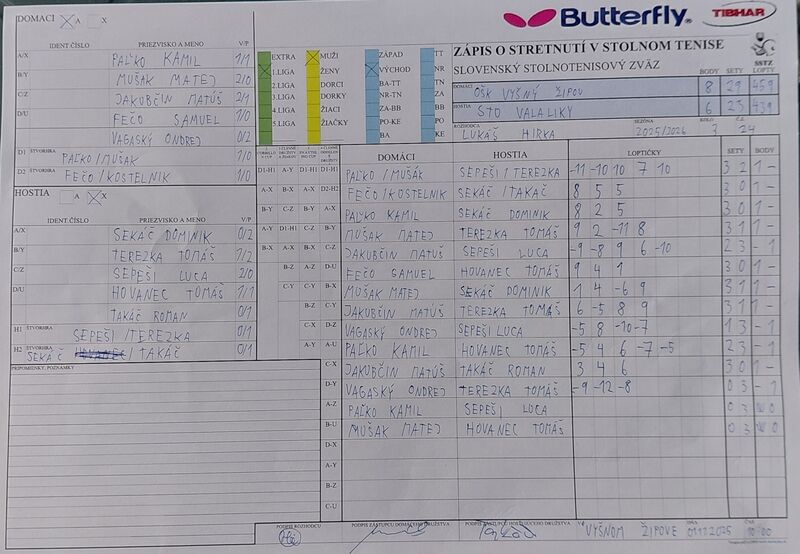 DOMÁCI X A X
IDENT.ČÍSLO PRIEZVISKO A MENO V/P
A/X PAĽKO KAMIL 1/1
B/Y MUŠAK MATEJ 2/0
C/Z JAKUBČIN MATÚŠ 2/1
D/U FEČO SAMUEL 1/0
VAGASKÝ ONDREJ 0/2
D1 ŠTVORHRA PAĽKO/MUŠAK 1/0
D2 ŠTVORHRA FEČO/KOSTELNIK 1/0
HOSTIA A X
IDENT.ČÍSLO PRIEZVISKO A MENO V/P
A/X SEKÁČ DOMINIK 0/2
B/Y TEREZKA TOMÁŠ 1/2
C/Z SEPEŠI LUCA 2/0
D/U HOVANEC TOMÁŠ 1/1
TAKÁČ ROMAN 0/1
H1 ŠTVORHRA SEPEŠI/TEREZKA 0/1
H2 ŠTVORHRA SEKÁČ / TAKÁČ 0/1
PRIPOMIENKY, POZNÁMKY
Butterfly TIBHAR
EXTRA MUŽI ZÁPAD TT
1.LIGA ŽENY VÝCHOD NR
2.LIGA DORCI BA-TT TN
3.LIGA DORKY NR-TN ZA
4.LIGA ŽIACI ZA-BB BB
5.LIGA ŽIAČKY PO-KE PO
BA KE
ZÁPIS O STRETNUTÍ V STOLNOM TENISE
SLOVENSKÝ STOLNOTENISOVÝ ZVÄZ
SSTZ
BODY SETY LOPTY
DOMÁCI OŠK VYŠNÝ ŽIPOV 8 29 459
HOSTIA STO VALALIKY 6 23 439
ROZHODCA LUKÁŠ HIRKA SEZÓNA 2025/2026 KOLO 3 Č.Z. 24
DOMÁCI HOSTIA LOPTIČKY SETY BODY
D1-H1 A-Y D1-H1 D1-H1 PAĽKO/MUŠÁK SEPEŠI/TEREZKA -11 -10 10 7 10 3 2 1 -
A-X B-X A-X D2-H2 FEČO/KOSTELNIK SEKÁČ/TAKAČ 8 5 5 3 0 1 -
B-Y C-Z B-Y A-X PAĽKO KAMIL SEKÁČ DOMINIK 8 2 5 3 0 1 -
A-Y D1-H1 C-Z B-Y MUŠAK MATEJ TEREZKA TOMÁŠ 9 2 -11 8 3 1 1 -
B-X A-X B-X C-Z JAKUBČIN MATÚŠ SEPEŠI LUCA -9 -8 9 6 -10 2 3 - 1
B-Z A-Z D-U FEČO SAMUEL HOVANEC TOMÁŠ 9 4 1 3 0 1 -
C-Y C-Y B-X MUŠAK MATEJ SEKÁČ DOMINIK 1 4 -6 9 3 1 1 -
B-Z C-Y JAKUBČIN MATÚŠ TEREZKA TOMÁŠ 6 -5 8 9 3 1 1 -
C-X D-Z VAGASKÝ ONDREJ SEPEŠI LUCA -5 8 -10 -7 1 3 - 1
A-Y A-U PAĽKO KAMIL HOVANEC TOMÁŠ -5 4 6 -7 -5 2 3 - 1
C-X JAKUBČIN MATÚŠ TAKÁČ ROMAN 3 4 6 3 0 1 -
D-Y VAGASKÝ ONDREJ TEREZKA TOMÁŠ -9 -12 -8 0 3 - 1
A-Z PAĽKO KAMIL SEPEŠI LUCA 0 3
B-U MUŠAK MATEJ HOVANEC TOMÁŠ 0 3
D-X
A-Y
B-Z
C-U
PODPIS ROZHODCU PODPIS ZÁSTUPCU DOMÁCEHO DRUŽSTVA PODPIS ZÁSTUPCU HOSŤUJÚCEHO DRUŽSTVA VYŠNOM ŽIPOVE